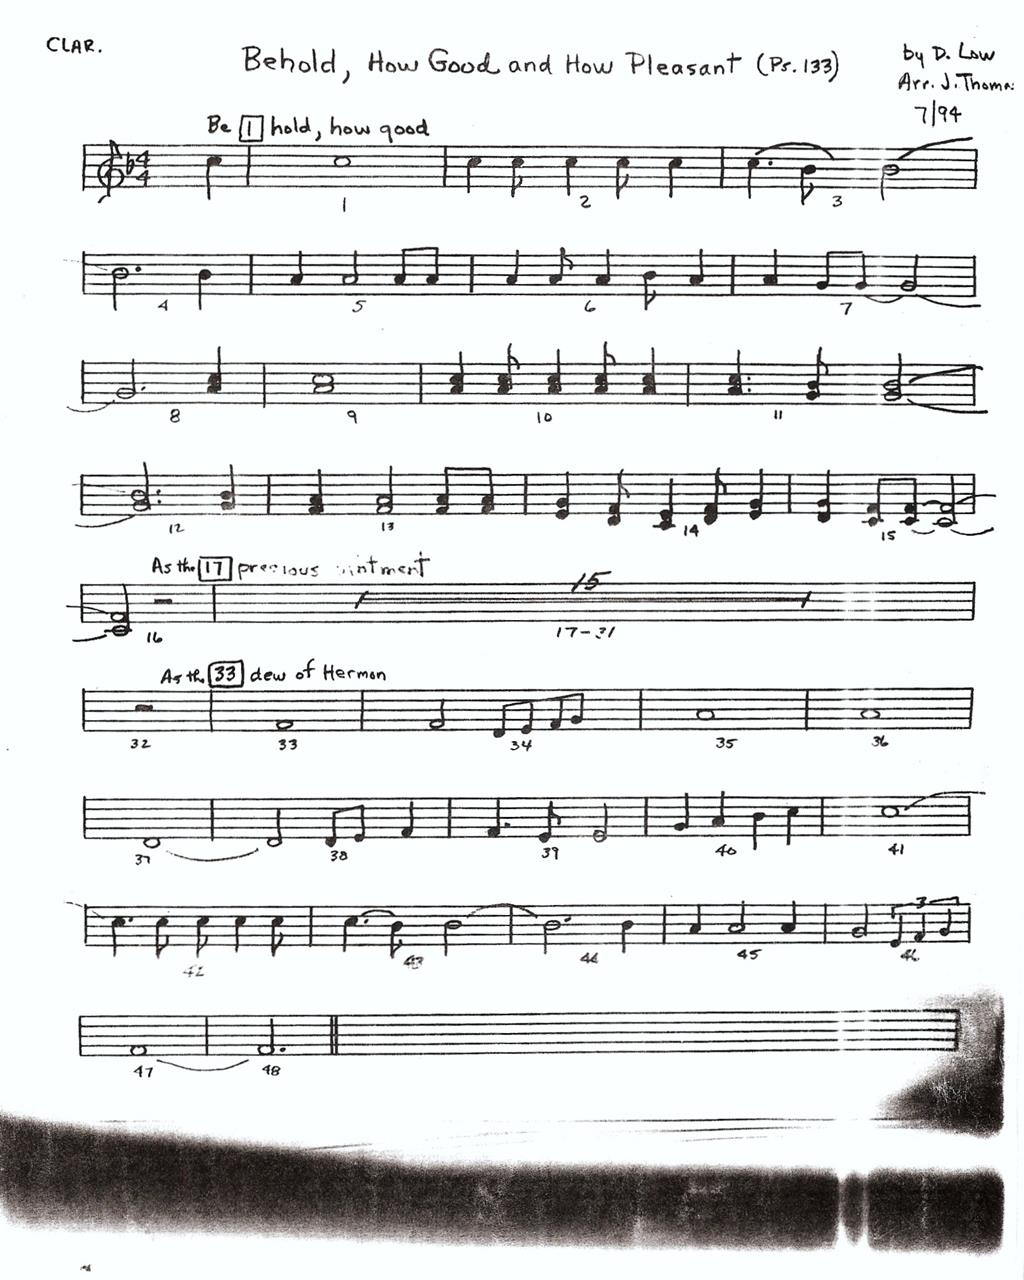 CLAR.
Behold, How Good and How Pleasant (Ps. 133)
by D. Low
Arr. J. Thomas
7/94
Be 1 hold, how good
4
4
1 2 3
4 5 6 7
8 9 10 11
12 13 14 15
As the 17 precious ointment
15
16 17-31
As the 33 dew of Hermon
32 33 34 35 36
37 38 39 40 41
3
42 43 44 45 46
47 48